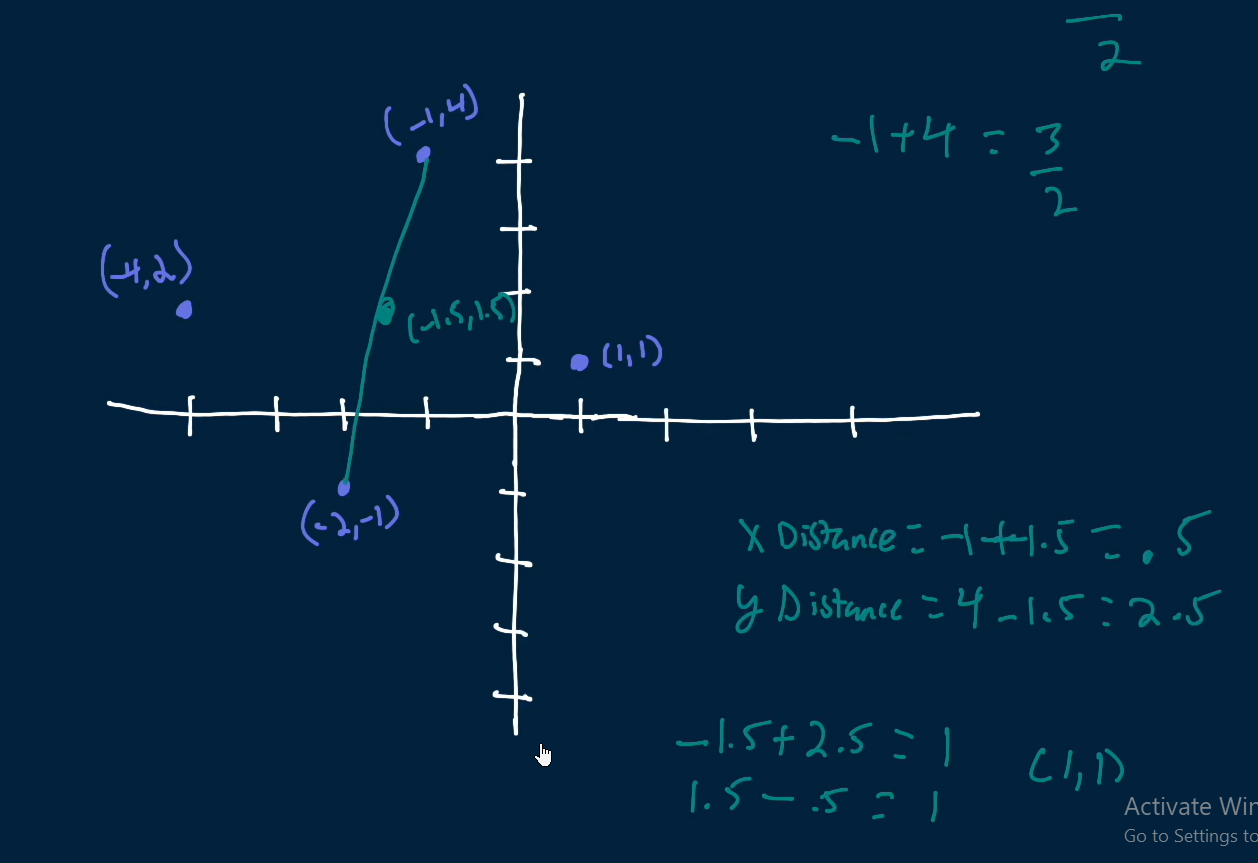 2
(-1,4)
-1+4 = 3
2
(-4,2)
(-1.5,1.5)
(1,1)
(-2,-1)
X Distance = -1+1.5 = .5
y Distance = 4-1.5 = 2.5
-1.5+2.5 = 1
(1,1)
1.5-.5 = 1
Activate Win
Go to Settings to